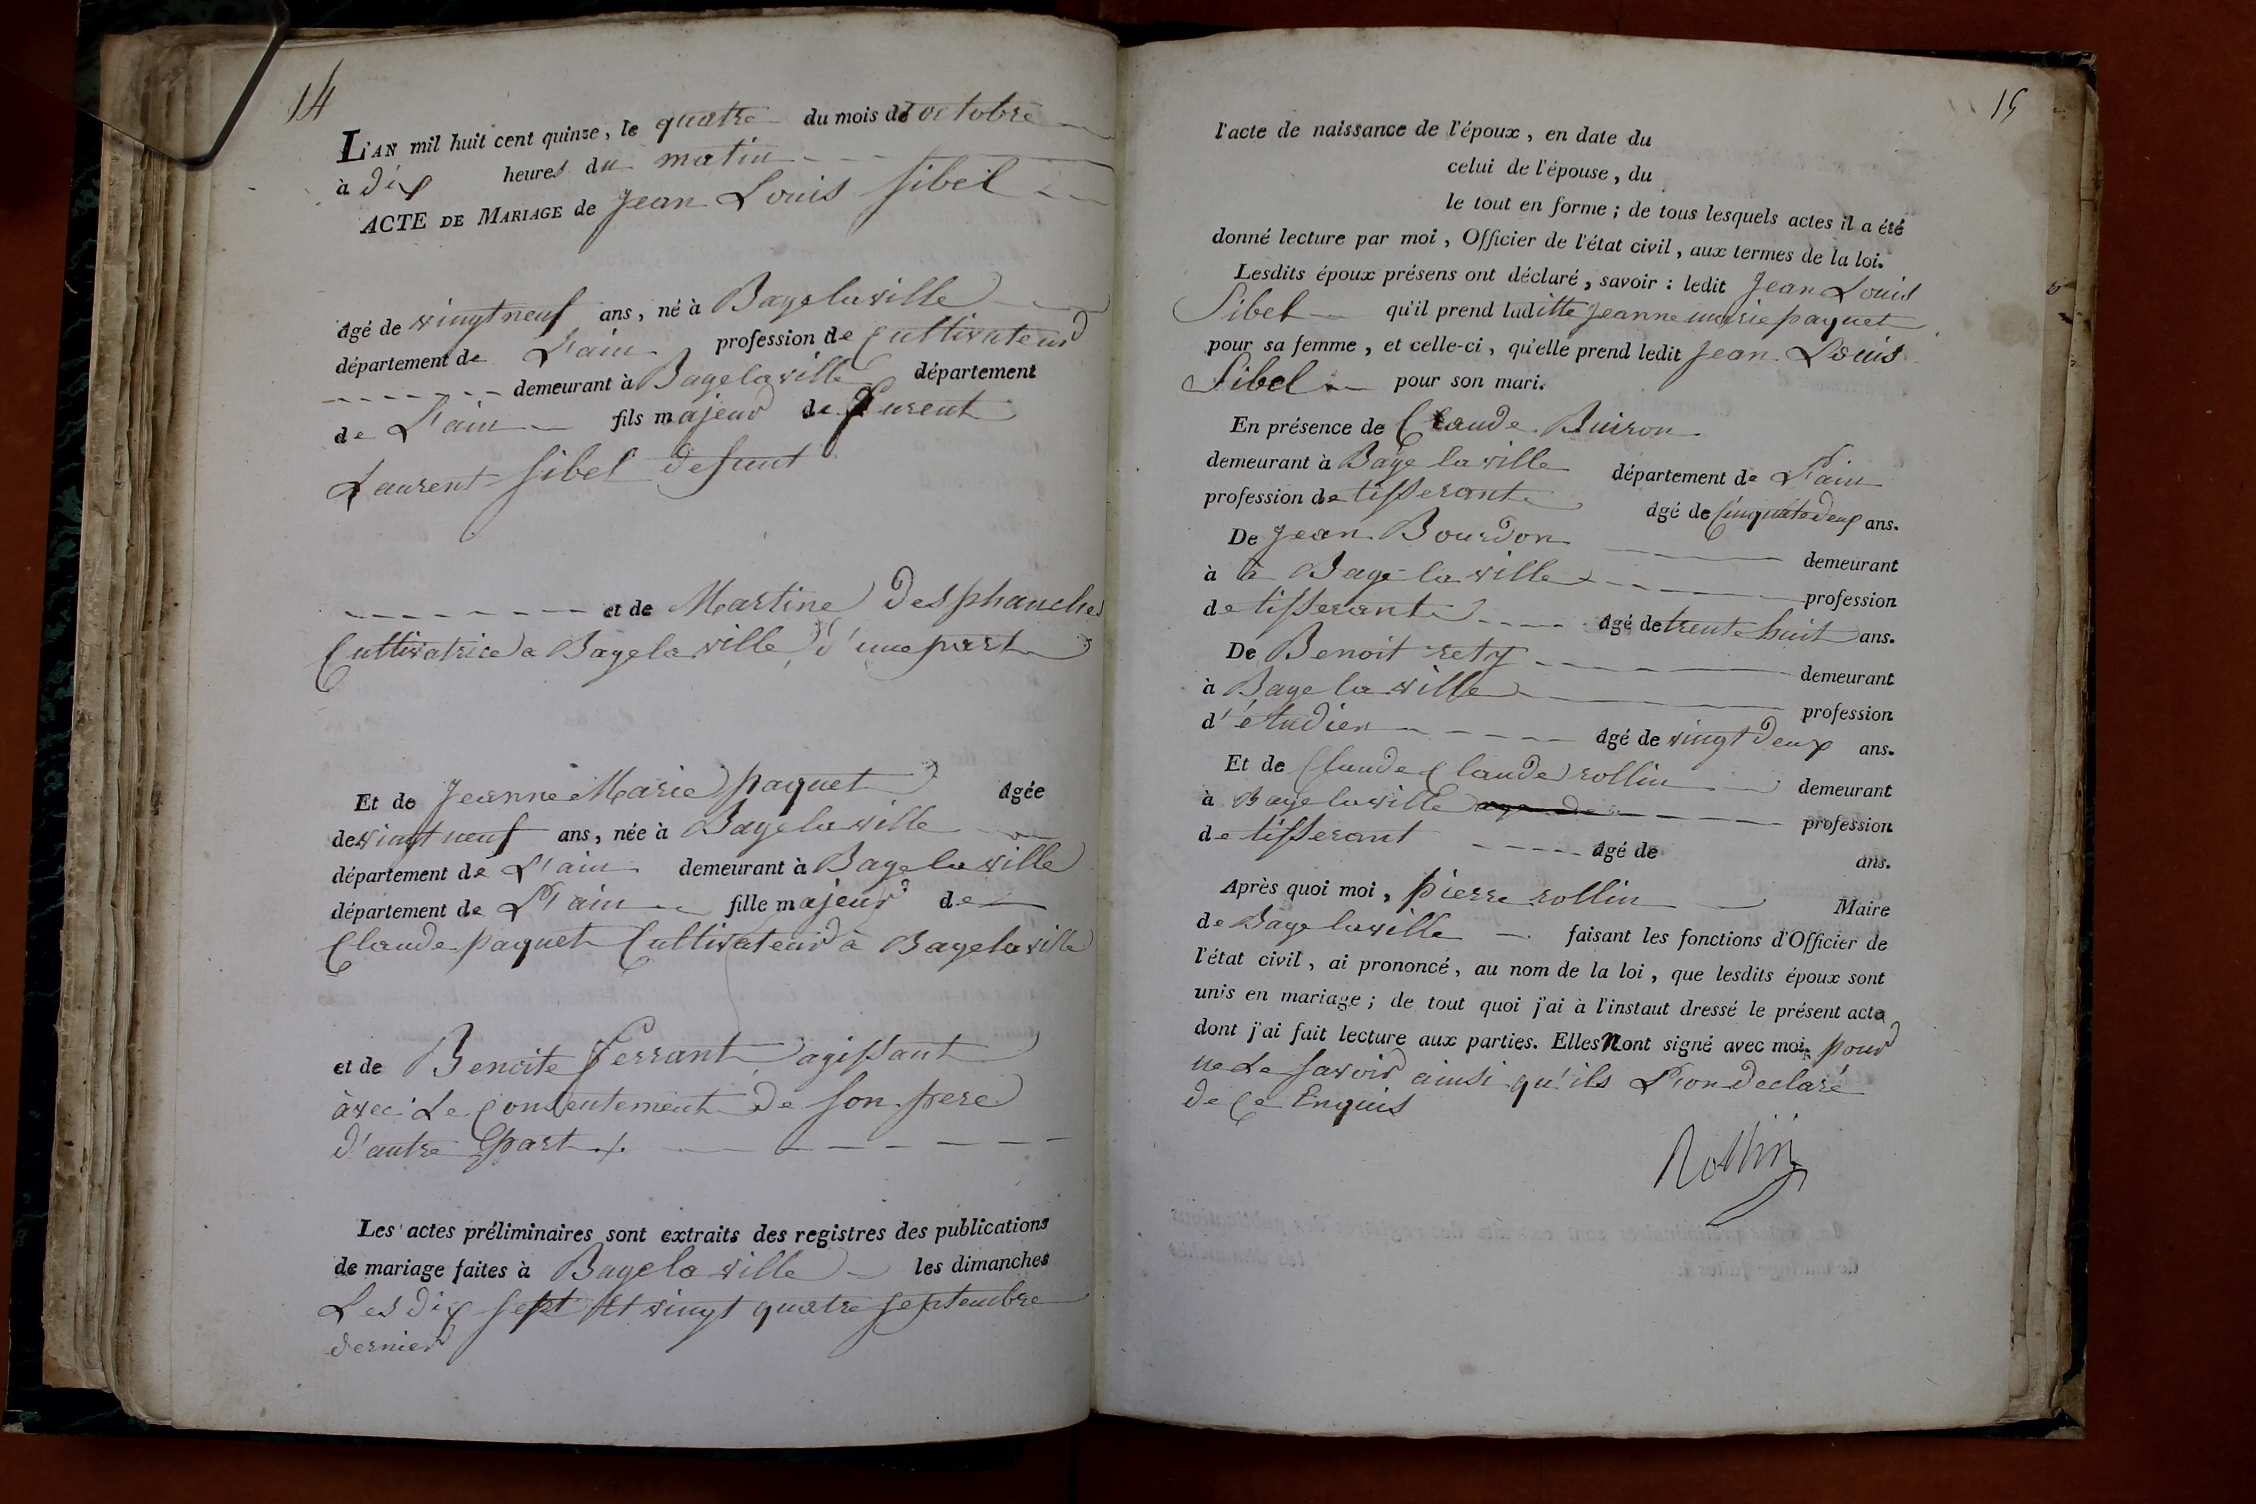 14
L'AN mil huit cent quinze, le quatre du mois de octobre
à dix heures du matin
ACTE DE MARIAGE de Jean Louis Sibel
âgé de vingt neuf ans, né à Bagelaville
département de L'ain profession de Cultivateur
demeurant à Bagelaville département
de L'ain fils majeur de
Laurent Sibel defunt
et de Martine Desphanches
Cultivatrice a Bagelaville d'une part
Et de Jeanne Marie paquet âgée
de vingt neuf ans, née à Bagelaville
département de L'ain demeurant à Bagelaville
département de L'ain fille majeur de
Claude paquet Cultivateur à Bagelaville
et de Benoite Ferrant agissant
àvec Le Consentement de son pere
d'autre part
Les actes préliminaires sont extraits des registres des publications
de mariage faites à Bagelaville les dimanches
Les dix sept Et vingt quatre septembre
dernier
15
l'acte de naissance de l'époux, en date du
celui de l'épouse, du
le tout en forme; de tous lesquels actes il a été
donné lecture par moi, Officier de l'état civil, aux termes de la loi.
Lesdits époux présens ont déclaré, savoir: ledit Jean Louis
Sibel qu'il prend laditte Jeanne marie paquet
pour sa femme, et celle-ci, qu'elle prend ledit Jean Louis
Sibel pour son mari.
En présence de Claude Buiron
demeurant à Bage la ville département de L'ain
profession de tisserant âgé de Cinquatedeux ans.
De Jean Bourdon demeurant
à à Bage la ville profession
de tisserant âgé de trente huit ans.
De Benoit rety demeurant
à Bage la ville profession
d'étudien âgé de vingt deux ans.
Et de Claude Claude rollin demeurant
à Bagelaville profession
de tisserant âgé de ans.
Après quoi moi, pierre rollin Maire
de Bagelaville faisant les fonctions d'Officier de
l'état civil, ai prononcé, au nom de la loi, que lesdits époux sont
unis en mariage; de tout quoi j'ai à l'instaut dressé le présent acte
dont j'ai fait lecture aux parties. Elles Nont signé avec moi. pour
ne Le savoir ainsi qu'ils L'on declaré
de Ce Enquis
Rollin